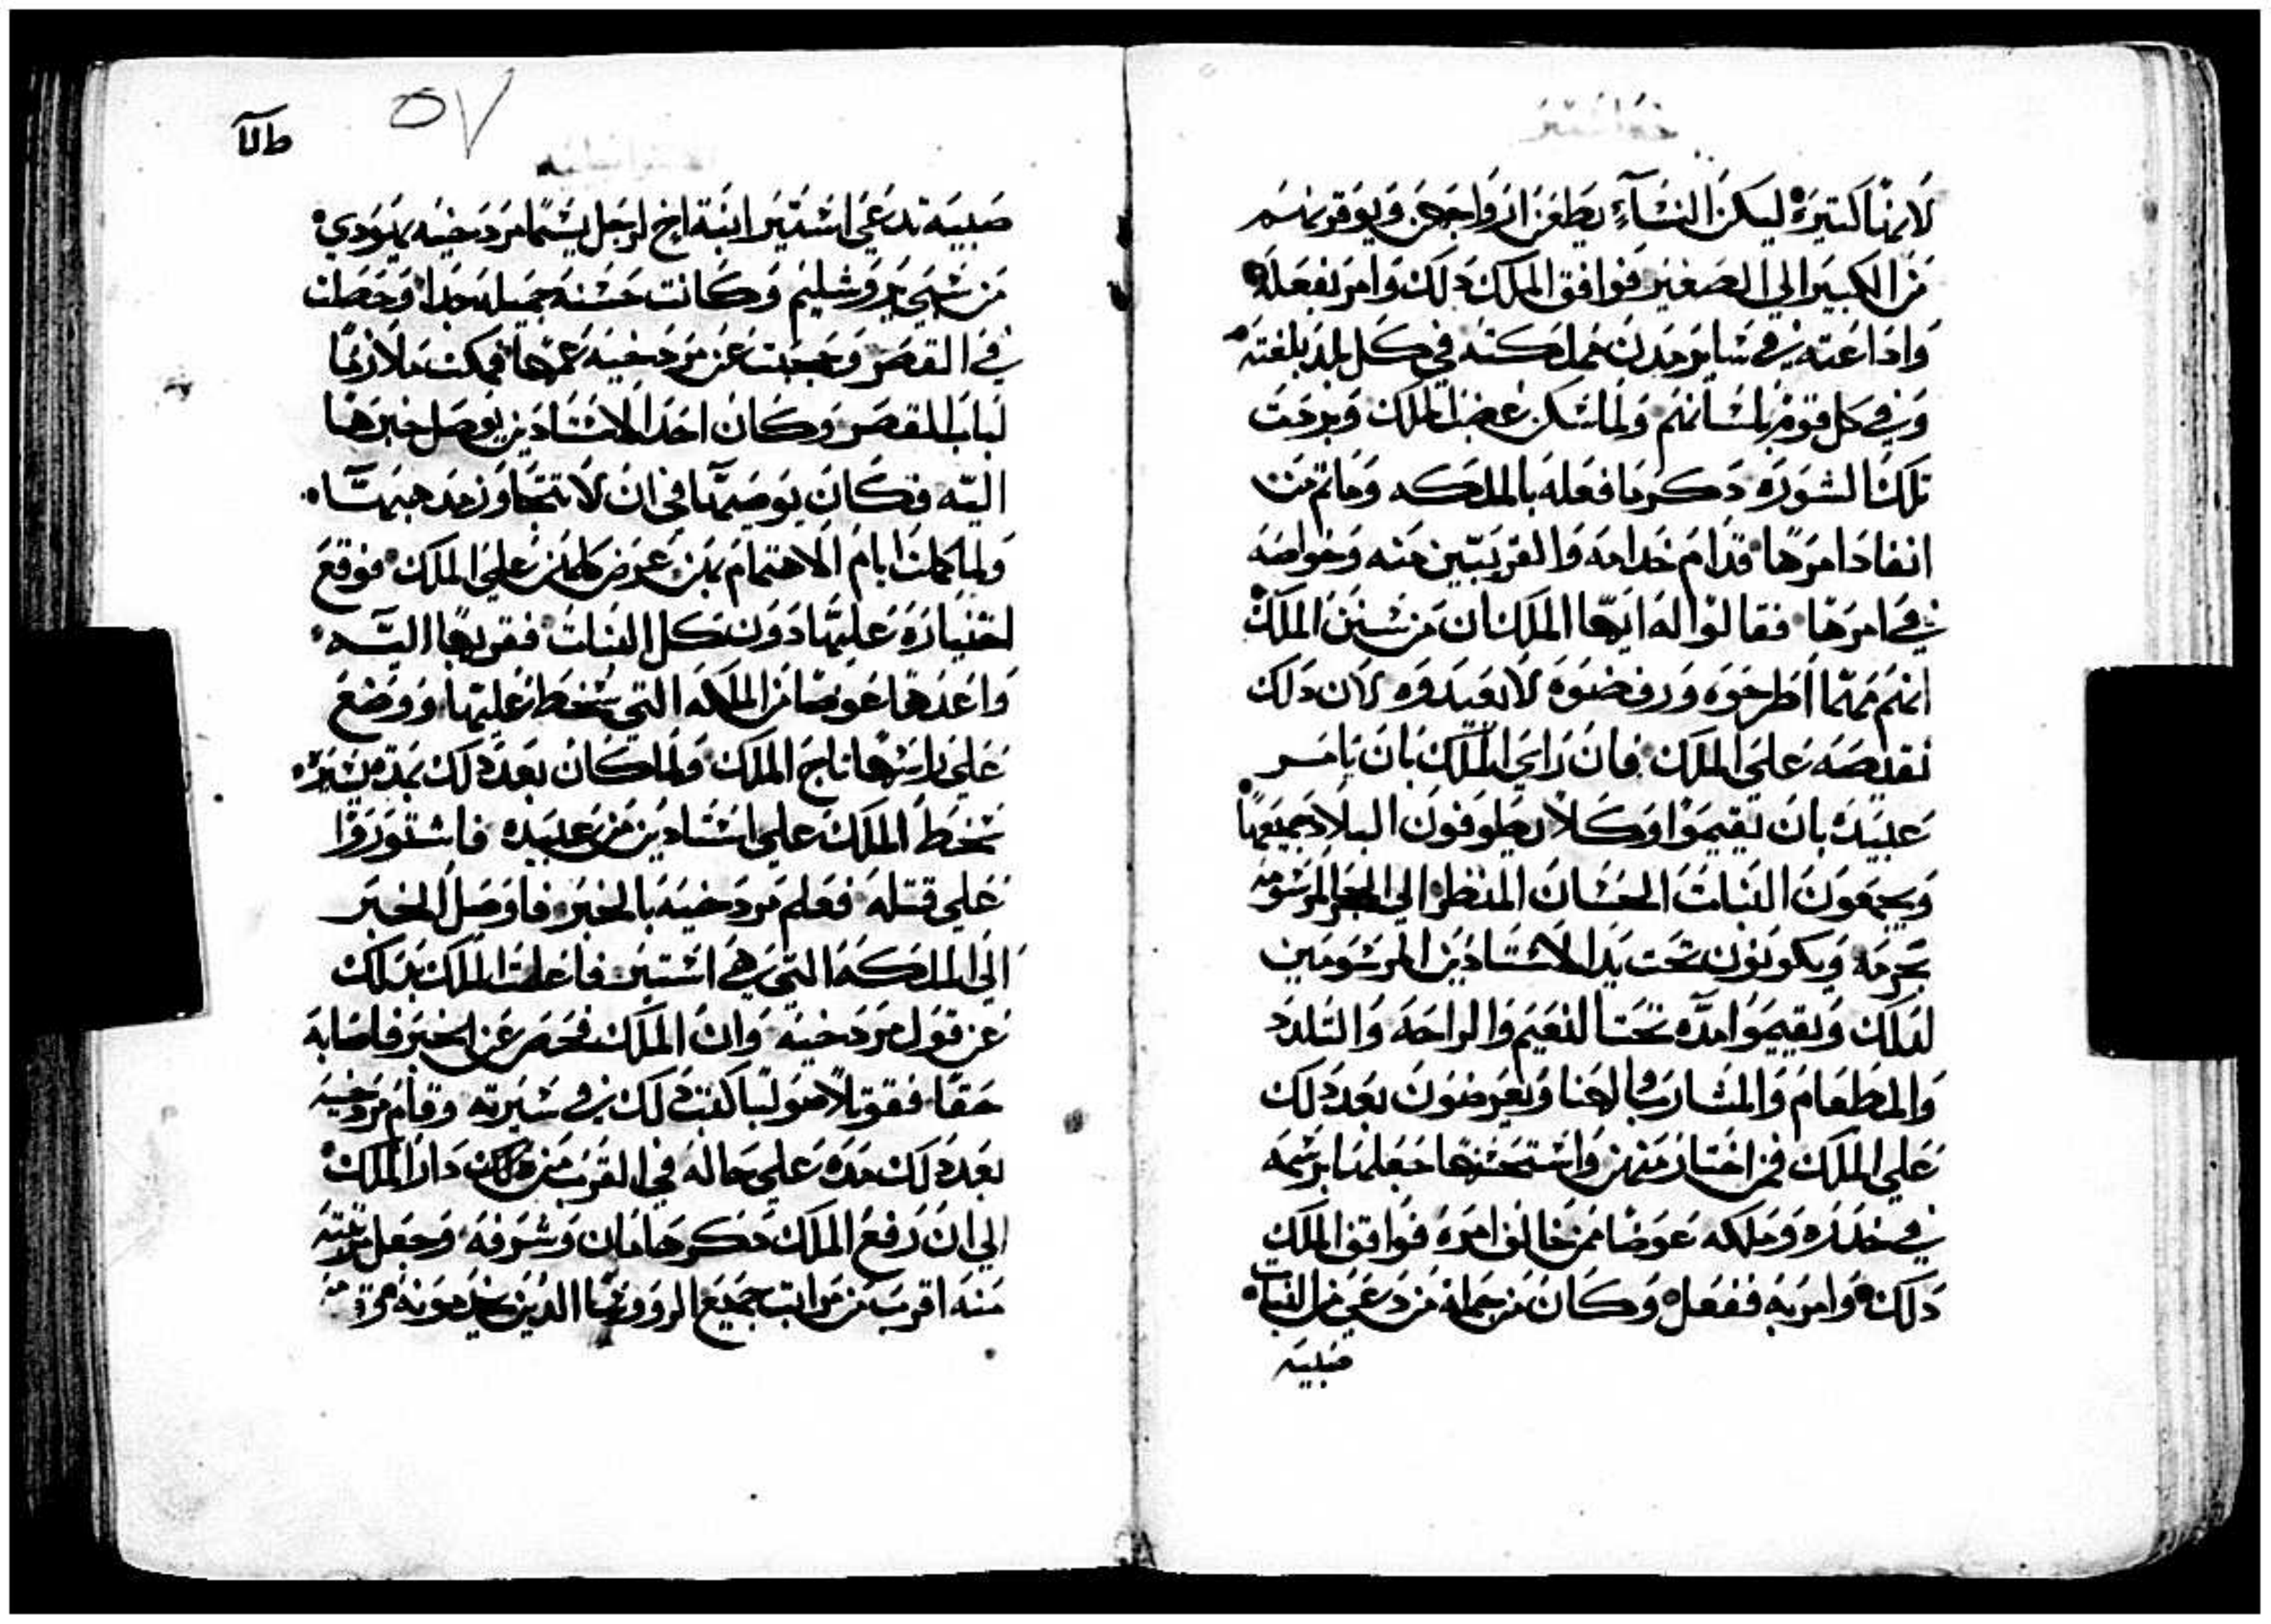 خبر استير
لانها كتيرة ليكن النسآء يطعن ازواجهن ويوقرنهم
من الكبير الي الصغير فوافق الملك دلك وامر بفعله
واداعته في ساير مدن مملكته في كل بلد بلغته
وفي كل قوم بلسانهم ولما سكن غضب الملك وبردت
تلك السورة دكر ما فعله بالملكه وما تم من
انفاد امرها قدام خدامه والقريبين منه وخواصه
في امرها فقالوا له ايها الملك ان من سنن الملك
انهم مهما اطرحوه ورفضوه لا يعيدوه لان دلك
نقيصه علي الملك فان راي الملك بان يامر
عبيده بان يقيموا وكلا يطوفون البلاد جميعها
ويجمعون البنات الحسان المنظر الي الحجر المرسومه
بحرمه ويكونون تحت يد الاستادين المرسومين
لدلك ويقيموا مده تحت النعيم والراحه والتلدد
والمطعام والمشارب والهنا ويعرضون بعد دلك
علي الملك فمن اختار منهن واستحسنها جعلها برسمه
في خدره وملكه عوضا ممن خالف امره فوافق الملك
دلك وامر به ففعل وكان من جملة من دعي من البنات
صبيه
٥٧
صبيه تدعي استير ابنة اخ لرجل يسما مردخيه يهودي
من سبي يروشليم وكانت حسنه جميله جدا وحصلت
في القصر وحجبت عن مردخيه عمها فمكت ملازما
لباب القصر وكان احد الاستادين يوصل خبرها
اليه فكان يوصيها في ان لا تتجاوز مدهبها
ولما كملت ايام الاهتمام بهن عرض كلهن علي الملك فوقع
اختياره عليها دون كل البنات فقربها اليه
واعدها عوضا من الملكه التي سخط عليها ووضع
علي راسها تاج الملك ولما كان بعد دلك بمدة يسيره
سخط الملك علي استادين من عبيده فاستوروا
علي قتله فعلم مردخيه بالخبر فاوصل الخبر
الي الملكه التي هي استير فاعلمت الملك بدلك
عن قول مردخيه وان الملك فحص عن الخبر فاصابه
حقا فقوتلا صولبا كتب دلك في سيرته وقام مردخيه
بعد دلك مده علي حاله في القرب من دار الملك
الي ان رفع الملك دكر هامان وشرفه وجعل مرتبته
منه اقرب من مراتب جميع الرووسا الدين يخدمونه